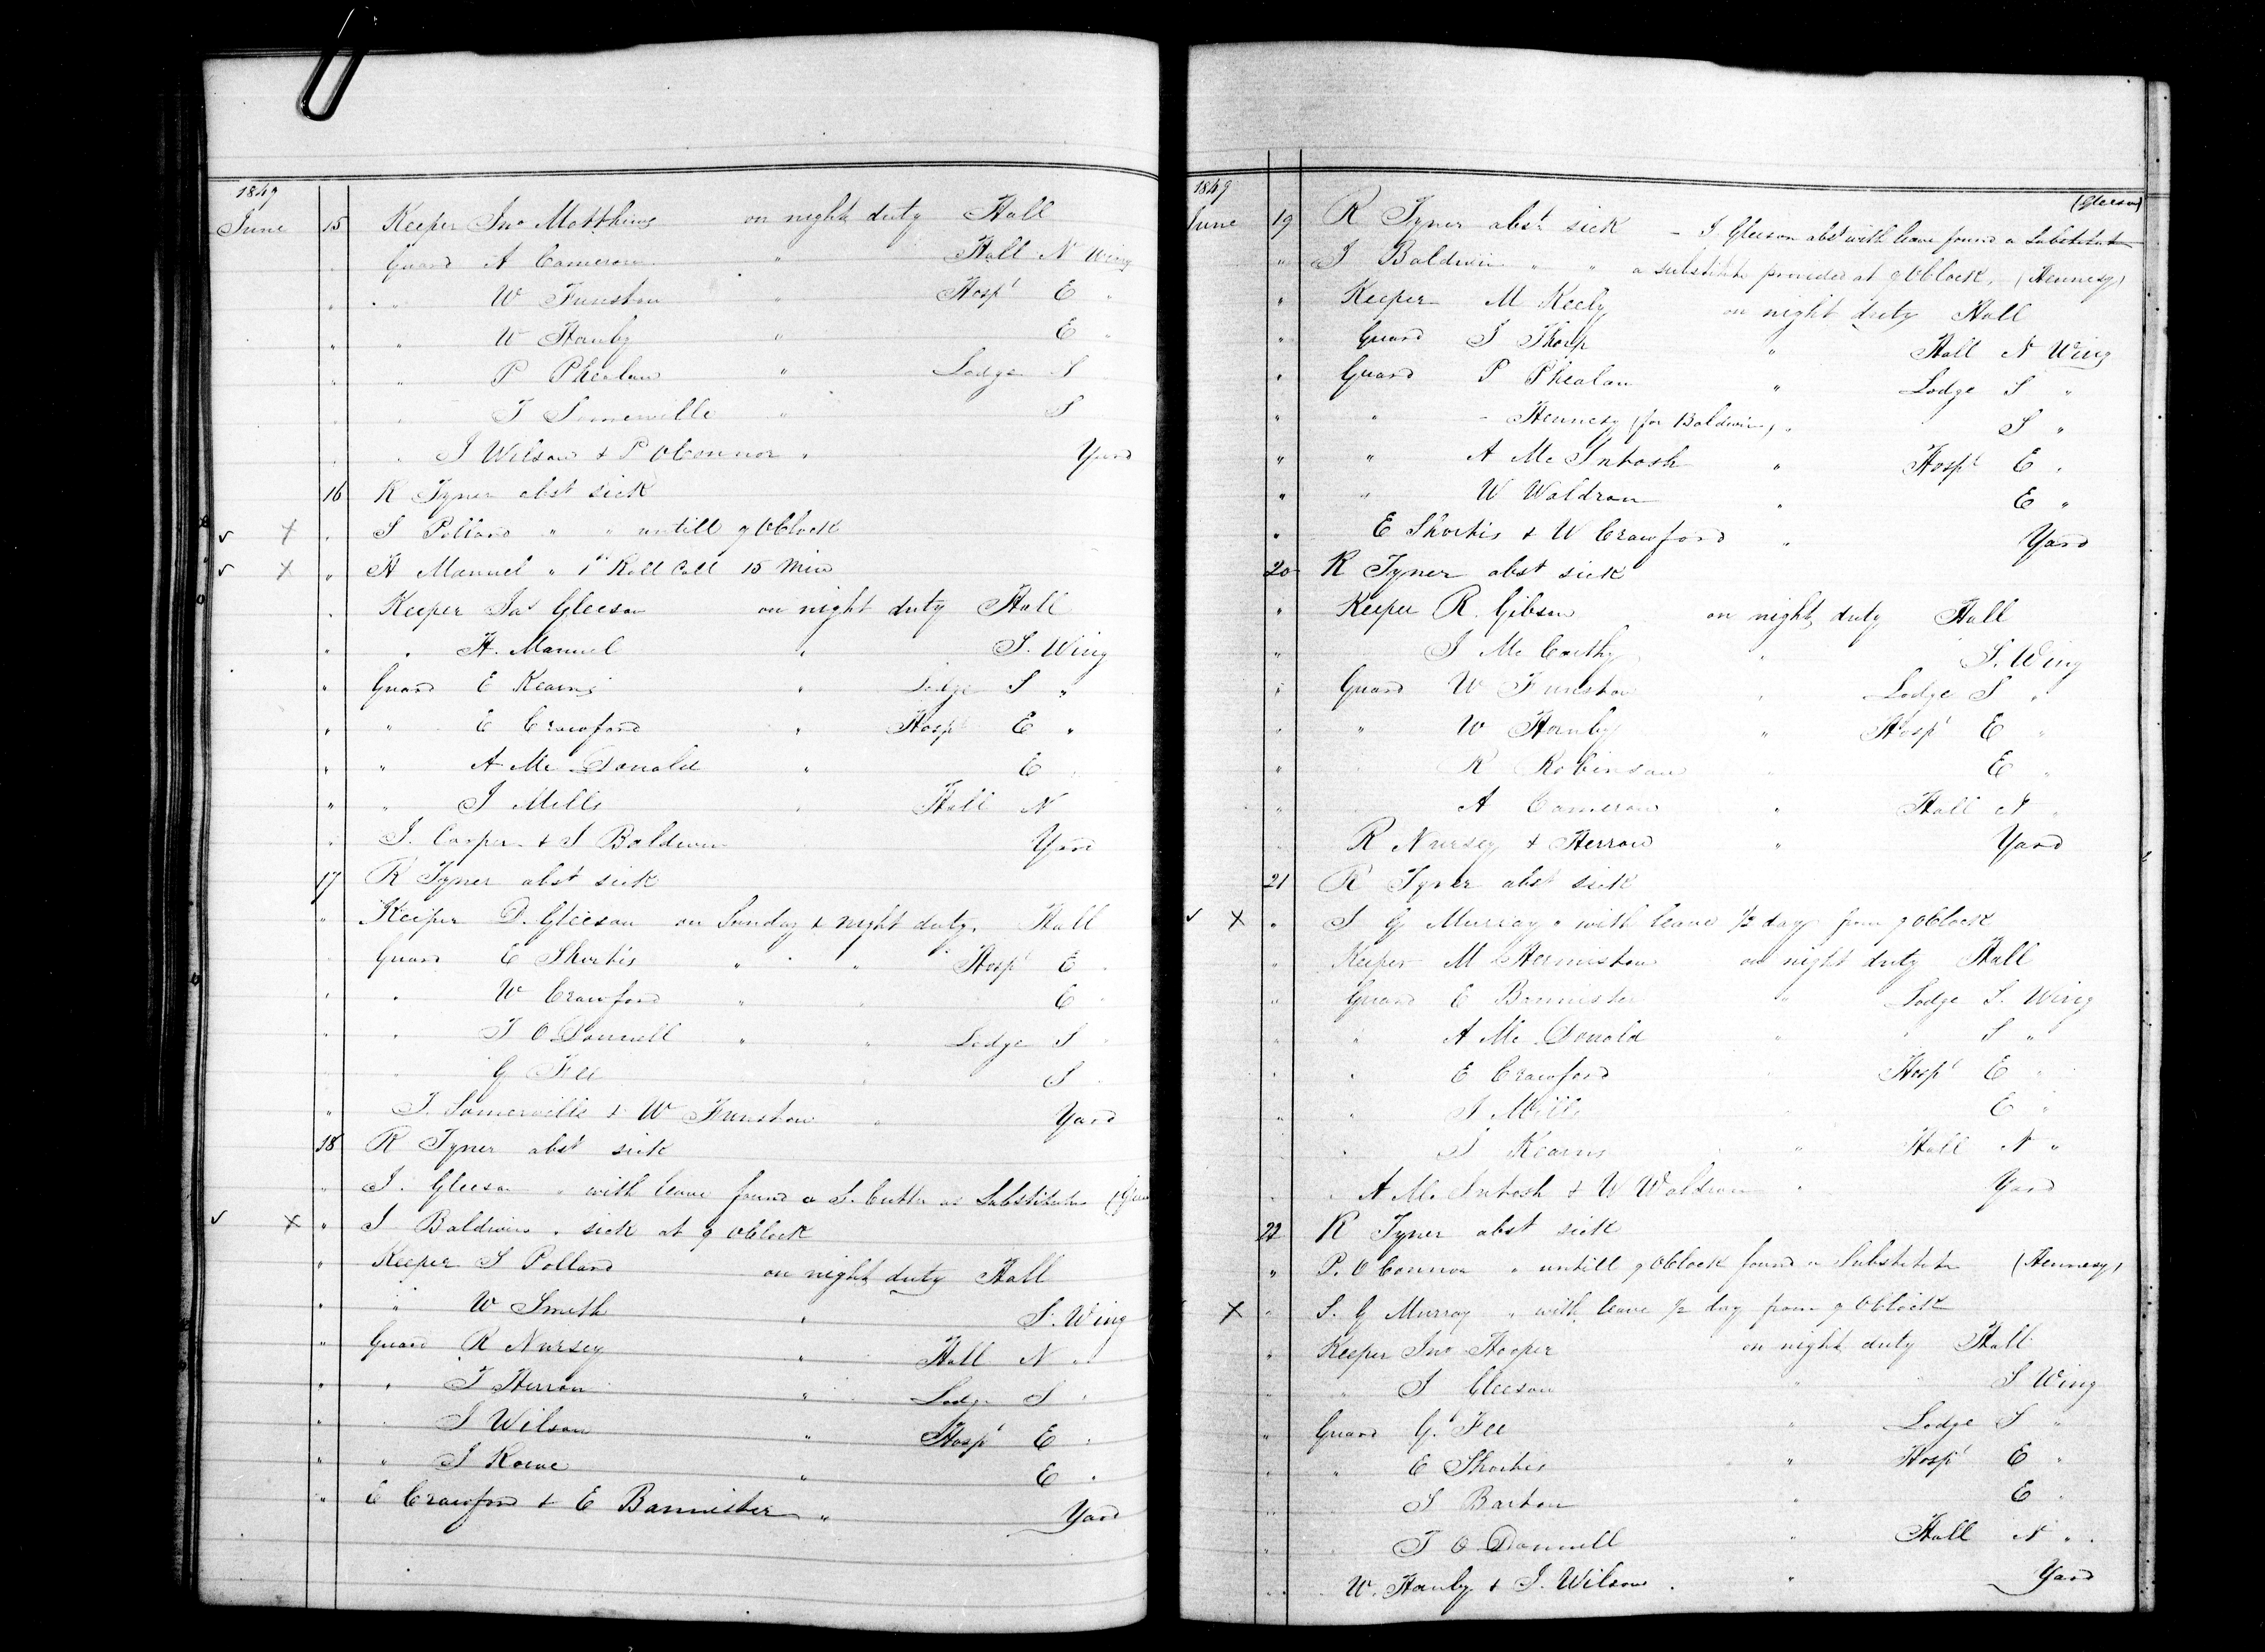 1849
June 15 Keeper Jno Matthews on night duty Hall
" Guard A Cameron " Hall N Wing
" " W Funston " Hospl E "
" " W Hanby " E "
" " P Phealan " Lodge S
" " T Somerville " S
" " J Wilson & P OConnor " Yard
16 R Tyner abst sick
" S Pollard " " untill 9 OClock
" H Manuel " 1st Roll Call 15 Min
" Keeper Jas Gleeson on night duty Hall
" " H. Manuel " S. Wing
" Guard E Kearns " Lodge S "
" " E Crawford " Hospl E "
" " A Mc Donald " E
" " J Mills " Hall N
" J. Cooper & J Baldwin Yard
17 R Tyner abst sick
" Keeper D. Gleeson on Sunday & night duty. Hall
" Guard E Shortis " " " Hospl E "
" " W Crawford " " E "
" " T O Donnell " " Lodge S "
" " G Fee " S
" T. Somerville & W Funston " Yard
18 R Tyner abst sick
" J. Gleeson " with leave found a as Substitute
" J Baldwin " sick at 9 OClock
" Keeper S Pollard on night duty Hall
" " W Smith " S. Wing
" Guard R Nursey " Hall N "
" " T Herron " Lodge S "
" " J Wilson " Hospl E "
" " J Rowe " E "
" E Crawford & E Bannister " Yard
1849
(Gleeson)
June 19 R Tyner abst sick – J Gleeson abst with leave found a Substitute
" J Baldwin " " a substitute provided at 9 OClock. (Hennesy)
" Keeper M Keely on night duty Hall
" Guard J Thorp " Hall N Wing
" Guard P Phealan " Lodge S "
" " – Hennesy (for Baldwin) " S "
" " A Mc Intosh " Hospl E "
" " W Waldron " E "
" E Shortis & W Crawford " Yard
20 R Tyner abst sick
" Keeper R. Gibson on night duty Hall
" J Mc Carthy " S. Wing
" Guard W Funston " Lodge S "
" " W Hanby " Hospl E "
" R Robinson " E "
" A Cameron " Hall N "
" R Nursey & Herron " Yard
21 R Tyner abst sick
" S G Murray " with leave 1/2 day from 9 OClock
" Keeper M Hermiston on night duty Hall
" Guard E Bannister " Lodge S. Wing
" " A Mc Donald " S "
" " E Crawford Hospl E "
" " J Mills E "
" " J Kearns " Hall N "
" " A Mc Intosh & W Waldron " Yard
22 R Tyner abst sick
" P. O Connor " untill 9 OClock found a Substitute (Hennesy)
" S. G Murray " with leave 1/2 day from 9 OClock
" Keeper Jno Hooper on night duty Hall
" " J Gleeson " S Wing
" Guard G. Fee " Lodge S "
" " E Shortis " Hospl E "
" J Barton " E "
" T O Donnell " Hall N "
" W. Hanby & J. Wilson " Yard